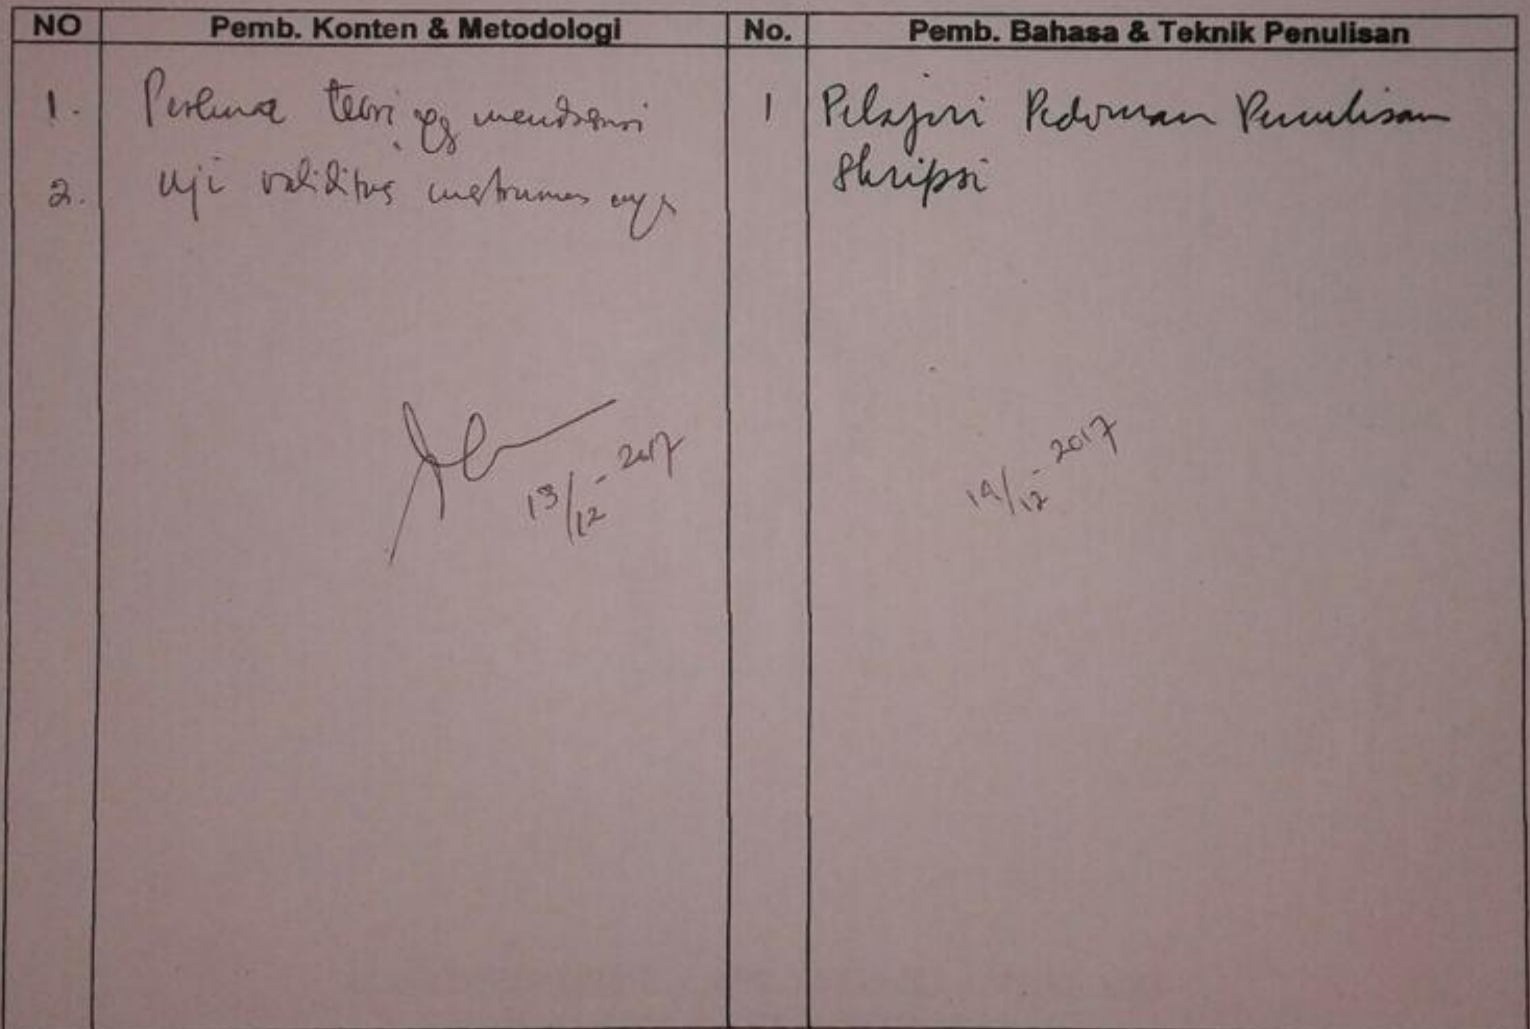 NO Pemb. Konten & Metodologi No. Pemb. Bahasa & Teknik Penulisan
1. teori yg 1 Pelajari Pedoman Penulisan
Skripsi
2. Uji validitas instrumennya
13/12 - 2017
19/12 - 2017